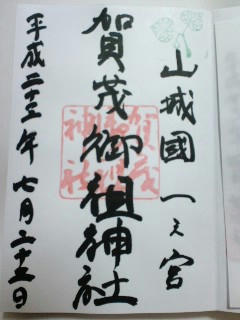 山城國一之宮
賀茂御祖神社
平成二十三年七月二十三日